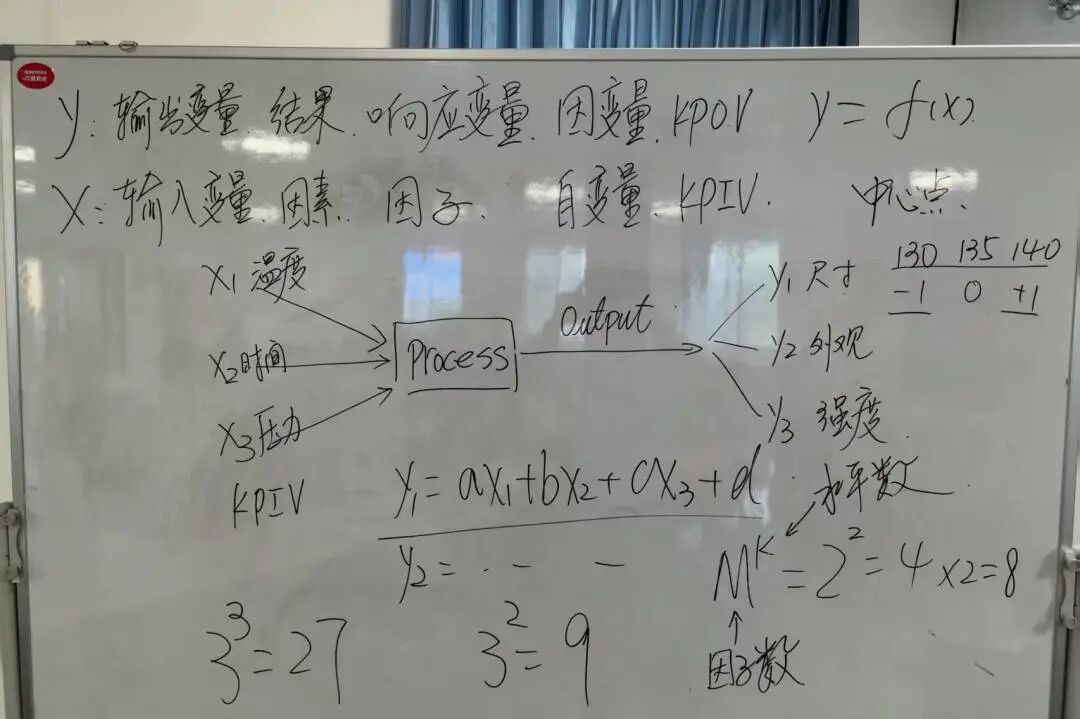 y: 输出变量、结果、响应变量、因变量、KPOV y = f(x)
X: 输入变量、因素、因子、自变量、KPIV. 中心点、
X1 温度
X2 时间
X3 压力
KPIV
Process
Output
y1 尺寸
y2 外观
y3 强度
130 135 140
-1 0 +1
y1 = ax1 + bx2 + cx3 + d
y2 = . - -
水平数
M^K = 2^2 = 4 x2 = 8
因子数
3^3 = 27
3^2 = 9